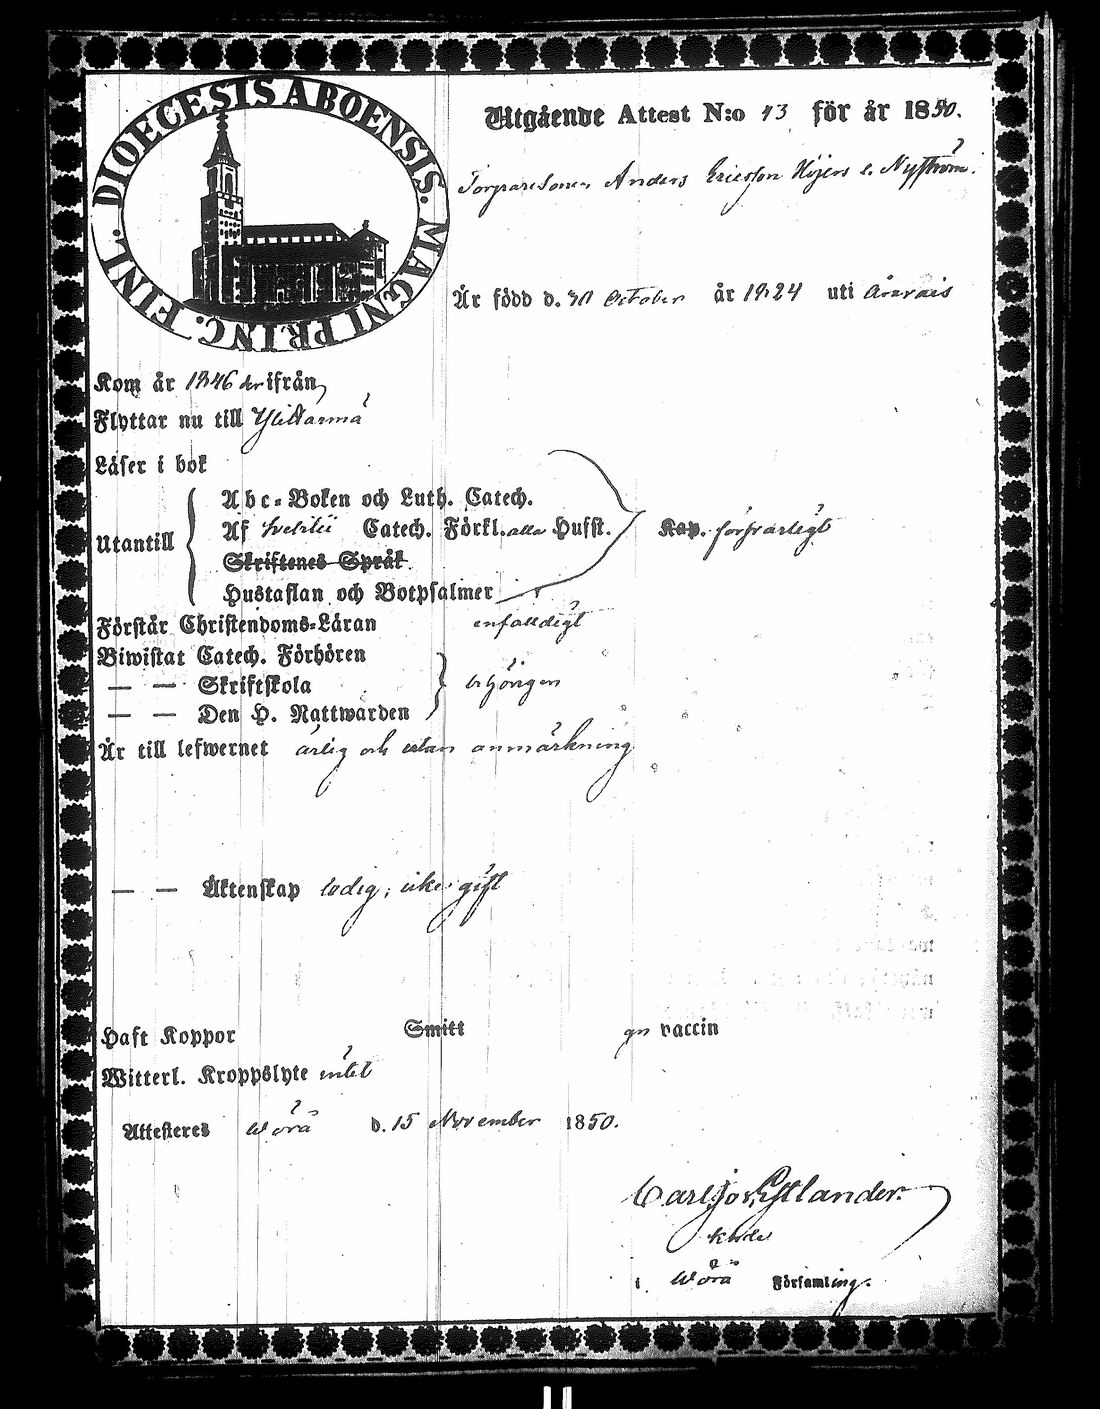 DIOECESIS ABOENSIS. MAGNI PRINC. FINL.
Utgående Attest N:o 43 för år 1850.
Torparesonen Anders Ericsson Höjers l. Nyström.
Är född d. 30 October år 1824 uti
Kom år 1846 derifrån,
Flyttar nu till Ylihärmä
Läser i bok
Utantill
Abc-Boken och Luth. Catech.
Af Svebilii Catech. Förkl. alla Husst.
Skriftenes Språk
Hustaflan och Botpsalmer
Kap. försvarligt
Förstår Christendoms-Läran enfalldigt
Biwistat Catech. Förhören
— — Skriftskola behörigen
— — Den H. Nattwarden
Är till lefwernet ärlig och utan anmärkning
— — Äktenskap ledig, icke gift
Haft Koppor Smitt gm vaccin
Witterl. Kroppslyte intet
Attesteres Wörå d. 15 November 1850.
Carl Jos. Estlander.
i Wörå Församling.